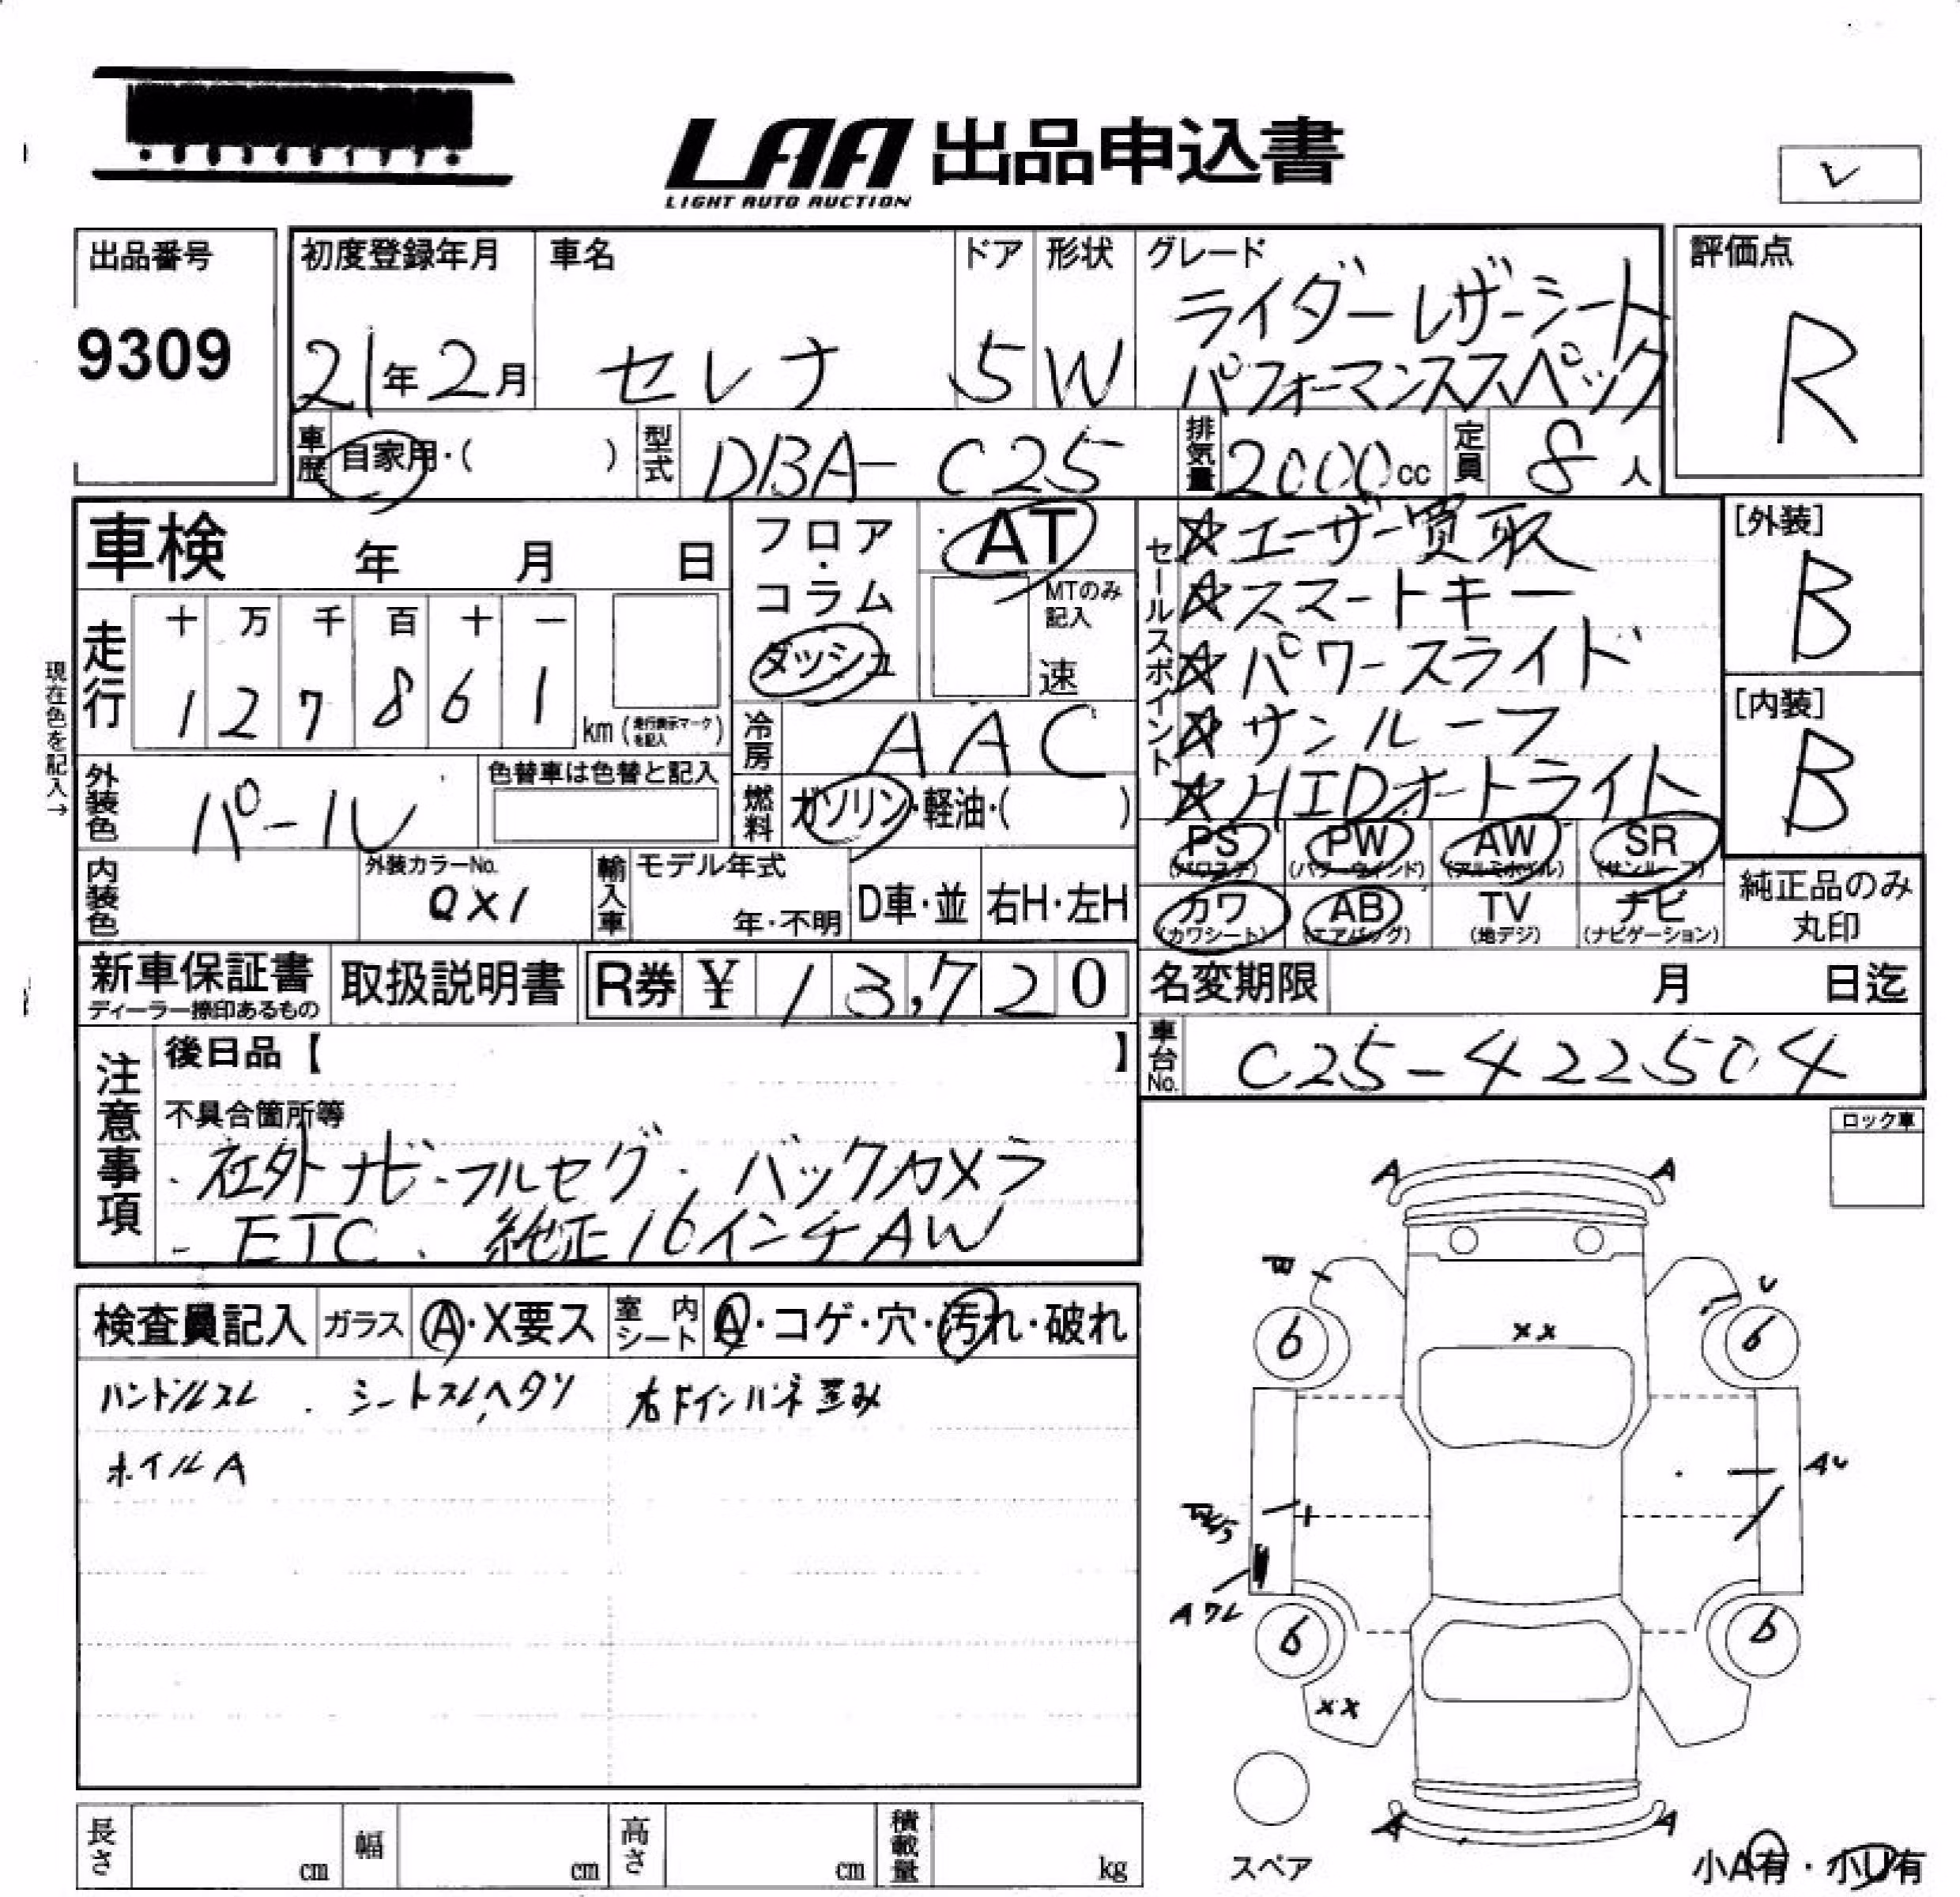 LAA 出品申込書
LIGHT AUTO AUCTION
レ
出品番号
9309
初度登録年月
21年2月
車名
セレナ
ドア
5
形状
W
グレード
ライダーレザーシート
パフォーマンススペック
評価点
R
車歴
自家用・( )
型式
DBA-C25
排気量
2000cc
定員
8人
車検 年 月 日
走行
十 万 千 百 十 一
1 2 7 8 6 1
km (走行表示マークを記入)
現在色を記入→
フロア・コラム
ダッシュ
AT
MTのみ記入
速
冷房
AAC
燃料
ガソリン・軽油・( )
セールスポイント
☆ユーザー買取
☆スマートキー
☆パワースライド
☆サンルーフ
☆HIDオートライト
[外装]
B
[内装]
B
外装色
パール
色替車は色替と記入
内装色
外装カラーNo.
QX1
輸入車
モデル年式
年・不明
D車・並
右H・左H
PS (パワステ)
PW (パワーウインド)
AW (アルミホイル)
SR (サンルーフ)
カワ (カワシート)
AB (エアバッグ)
TV (地デジ)
ナビ (ナビゲーション)
純正品のみ丸印
新車保証書
ディーラー捺印あるもの
取扱説明書
R券 ¥13,720
名変期限 月 日迄
車台No.
C25-422504
注意事項
後日品【 】
不具合箇所等
・社外ナビ・フルセグ・バックカメラ
・ETC、純正16インチAW
ロック車
検査員記入
ガラス
A・X要ス
室内シート
A・コゲ・穴・汚れ・破れ
ハンドルスレ . シートスレ、ヘタリ 右ドインパネ歪み
ホイルA
A A
U
6 6
XX
AU
Aワレ
6 6
XX
A A
スペア
小A有・小U有
長さ cm
幅 cm
高さ cm
積載量 kg